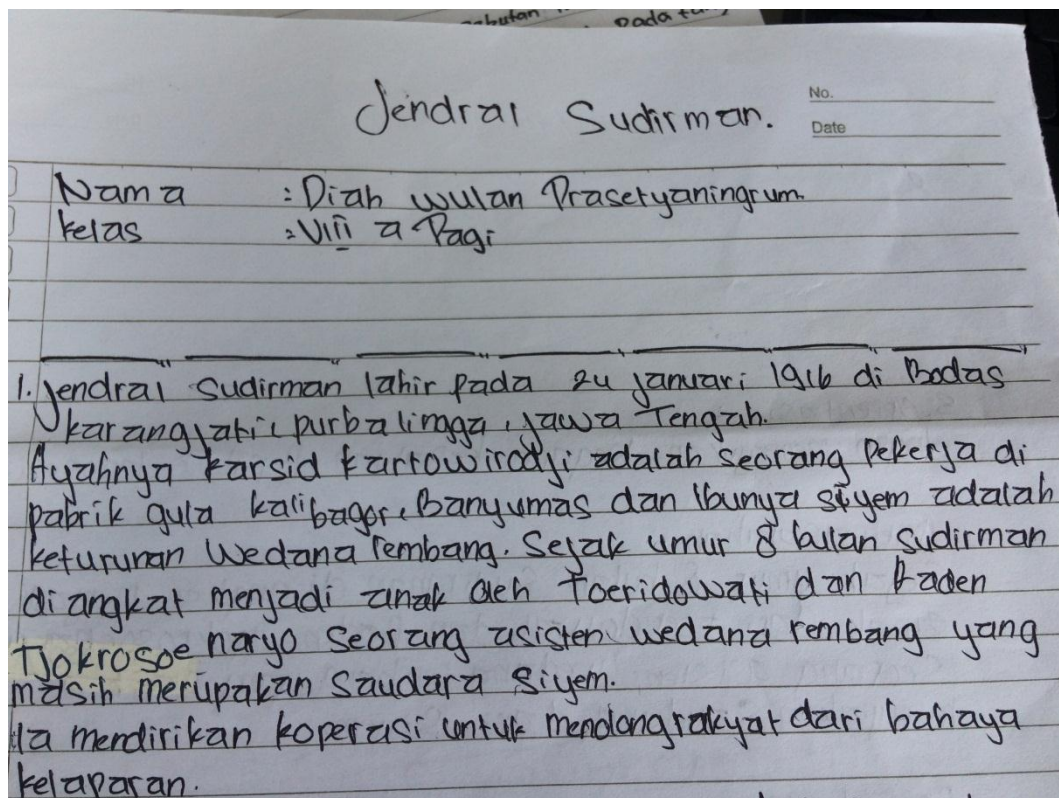 Jendral Sudirman.
No.
Date
Nama : Diah wulan Prasetyaningrum.
kelas : VIII a Pagi
1. Jendral Sudirman lahir pada 24 januari 1916 di Bodas
karangjati, purbalingga, jawa Tengah.
Ayahnya karsid kartowirodji adalah seorang Pekerja di
pabrik gula kalibagor, Banyumas dan Ibunya siyem adalah
keturunan Wedana rembang. Sejak umur 8 bulan Sudirman
di angkat menjadi anak oleh Toeridowati dan Raden
Tjokrosoenaryo Seorang asisten wedana rembang yang
masih merupakan Saudara Siyem.
Ia mendirikan koperasi untuk mendong rakyat dari bahaya
kelaparan.